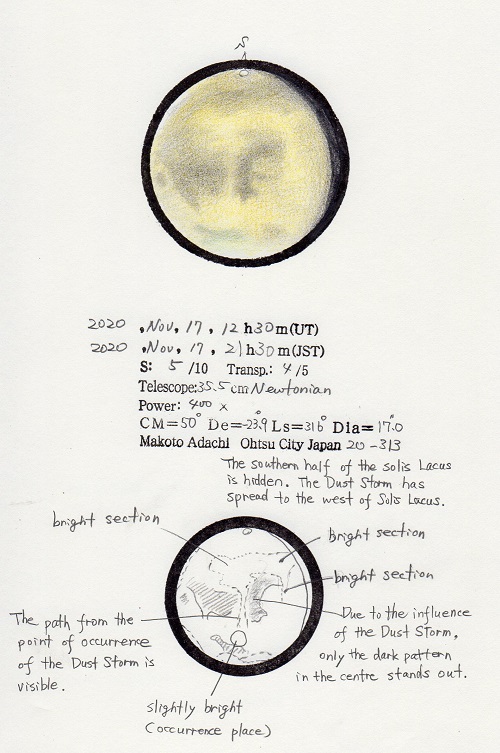 S
2020 , Nov, 17, 12 h30m(UT)
2020 , Nov, 17, 21h30m(JST)
S: 5 /10 Transp.: 4/5
Telescope:35.5cm Newtonian
Power: 400 ×
CM=50° De=-23.9° Ls=316° Dia=17.0"
Makoto Adachi Ohtsu City Japan 20-313
The southern half of the solis Lacus
is hidden. The Dust Storm has
spread to the west of Solis Lacus.
bright section
bright section
bright section
The path from the
point of occurrence
of the Dust Storm is
visible.
Due to the influence
of the Dust Storm,
only the dark pattern
in the centre stands out.
slightly bright
(occurrence place)